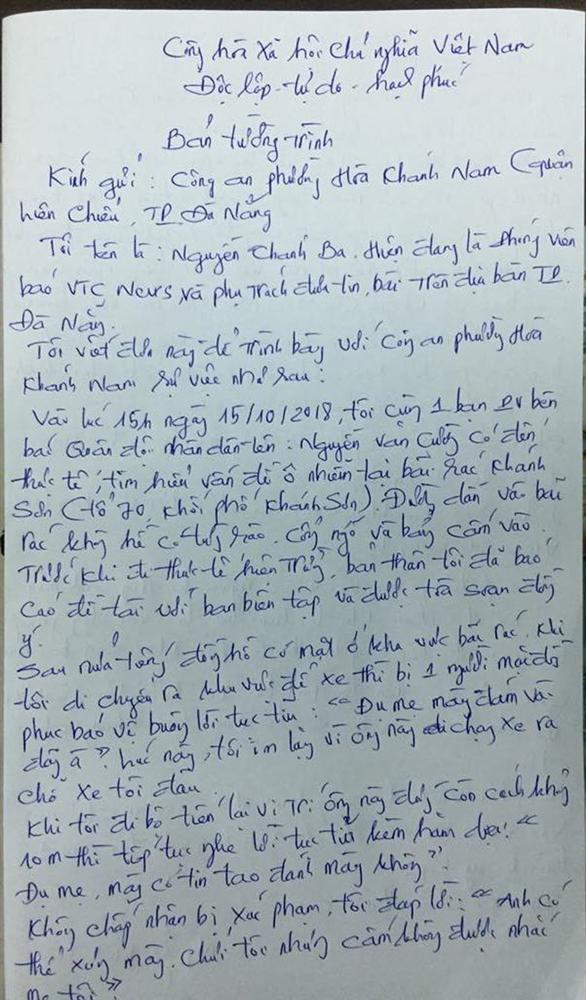 Cộng hòa Xã hội Chủ nghĩa Việt Nam
Độc lập - tự do - hạnh phúc
Bản tường trình
Kính gửi : Công an phường Hòa Khánh Nam (quận
Liên Chiểu, TP Đà Nẵng
Tôi tên là : Nguyễn Thanh Ba. Hiện đang là phóng viên
báo VTC News và phụ trách đưa tin, bài trên địa bàn TP.
Đà Nẵng.
Tôi viết đơn này để trình bày với Công an phường Hòa
Khánh Nam sự việc như sau :
Vào lúc 15h ngày 15/10/2018, tôi cùng 1 bạn PV bên
báo Quân đội nhân dân tên : Nguyễn Văn Cường có đến
thực tế, tìm hiểu vấn đề ô nhiễm tại bãi rác Khánh
Sơn (tổ 70, khối phố Khánh Sơn). Đường dẫn vào bãi
rác không hề có tường rào. Cổng ngõ và bảng cấm vào.
Trước khi đi thực tế hiện trường, bản thân tôi đã báo
cáo đề tài với ban biên tập và được tòa soạn đồng
ý.
Sau nửa tiếng đồng hồ có mặt ở khu vực bãi rác, khi
tôi di chuyển ra khu vực để xe thì bị 1 người mặc đồ
phục bảo vệ buông lời tục tĩu : << Đụ mẹ mày dám vào
đây à >>. Lúc này, tôi im lặng vì ông này chạy xe ra
chỗ xe tôi đậu.
Khi tôi đi bộ tiến lại vị trí ông này đứng còn cách khoảng
10m thì tiếp tục nghe lời tục tĩu kèm hăm dọa: <<
Đụ mẹ, mày có tin tao đánh mày không >>.
Không chấp nhận bị xúc phạm, tôi đáp lời : << Anh có
thể xưng mày. Chửi tôi nhưng cấm không được nhắc
mẹ tôi >>